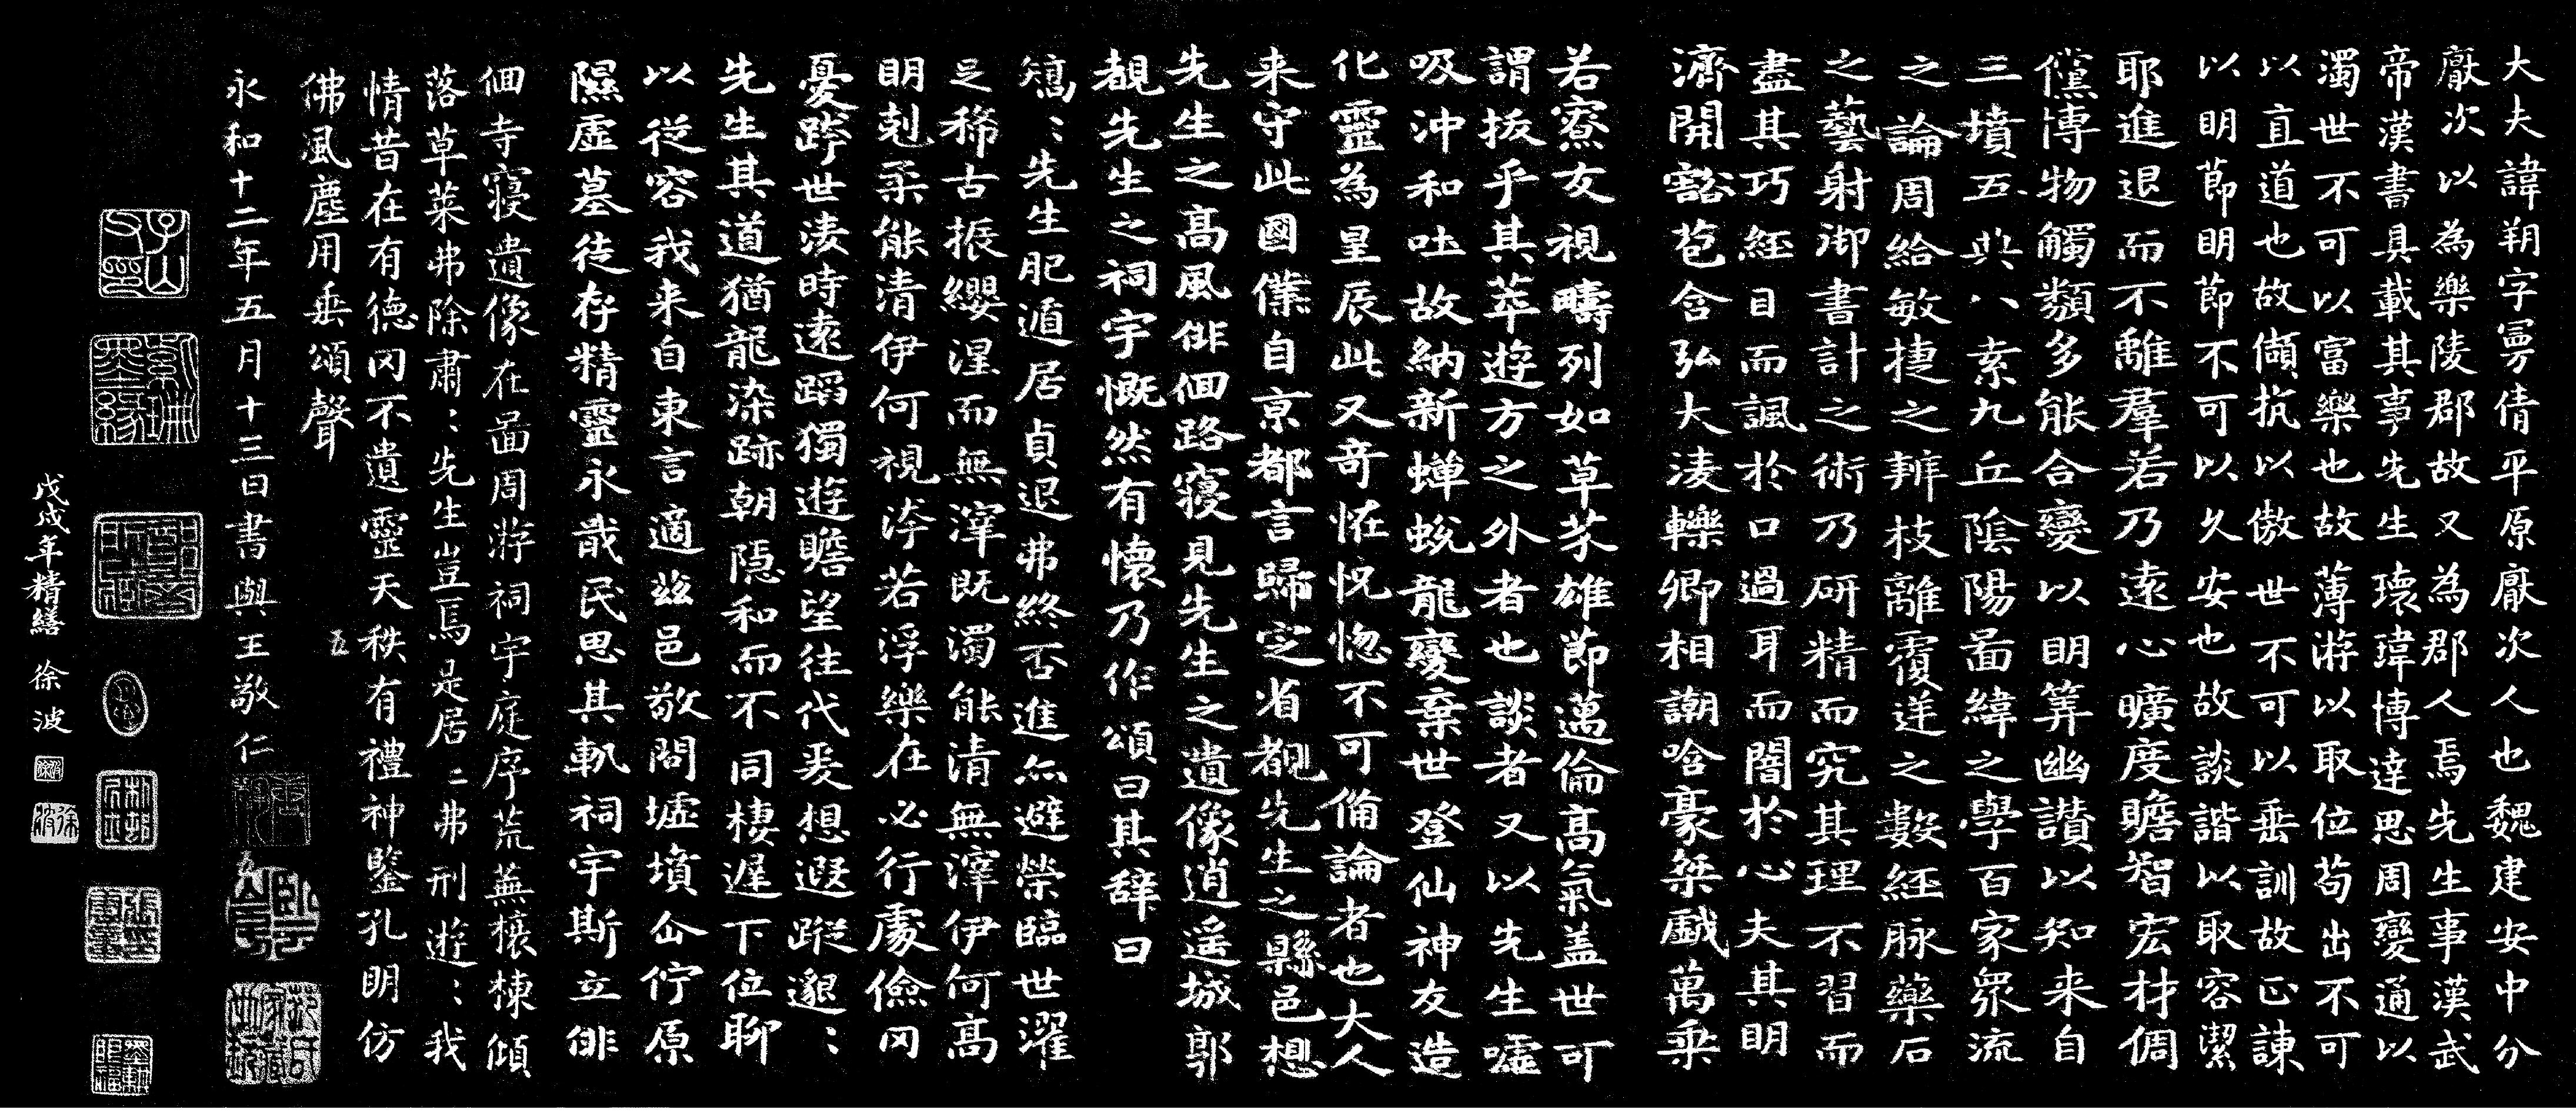 大夫諱朔字曼倩平原厭次人也魏建安中分
厭次以為樂陵郡故又為郡人焉先生事漢武
帝漢書具載其事先生瓌瑋博達思周變通以
濁世不可以富樂也故薄游以取位苟出不可
以直道也故傾抗以傲世不可以垂訓故正諫
以明節明節不可以久安也故談諧以取容潔
耶進退而不離羣若乃遠心曠度贍智宏材倜
儻博物觸類多能合變以明筭幽讚以知来自
三墳五典八索九丘陰陽啚緯之學百家眾流
之論周給敏捷之辨枝離覆逆之數經脉藥石
之藝射御書計之術乃研精而究其理不習而
盡其巧經目而諷於口過耳而闇於心夫其明
濟開豁苞含弘大凌轢卿相謿哈豪桀戲萬乗
若寮友視疇列如草芥雄節邁倫高氣盖世可
謂拔乎其萃遊方之外者也談者又以先生噓
吸沖和吐故納新蟬蛻龍變棄世登仙神友造
化靈為星辰此又奇怪怳惚不可備論者也大人
来守此國僕自京都言歸定省覩先生之縣邑想
先生之高風俳佪路寝見先生之遺像逍遥城郭
覩先生之祠宇慨然有懷乃作頌曰其辞曰
矯〻先生肥遁居貞退弗終否進亦避榮臨世濯
足稀古振纓涅而無滓既濁能清無滓伊何高
明剋柔能清伊何視洿若浮樂在必行處儉罔
憂跨世淩時遠蹈獨遊瞻望往代爰想遐蹤邈〻
先生其道猶龍染跡朝隱和而不同棲遲下位聊
以従容我来自東言適茲邑敬問墟墳企佇原
隰虚墓徒存精靈永戢民思其軌祠宇斯立俳
佪寺寝遺像在啚周游祠宇庭序荒蕪榱棟傾
落草莱弗除肅〻先生豈焉是居〻弗刑遊〻我
情昔在有德罔不遺靈天秩有禮神鑒孔明仿
佛風塵用垂頌聲
五
永和十二年五月十三日書與王敬仁
戊戌年精繕 徐波